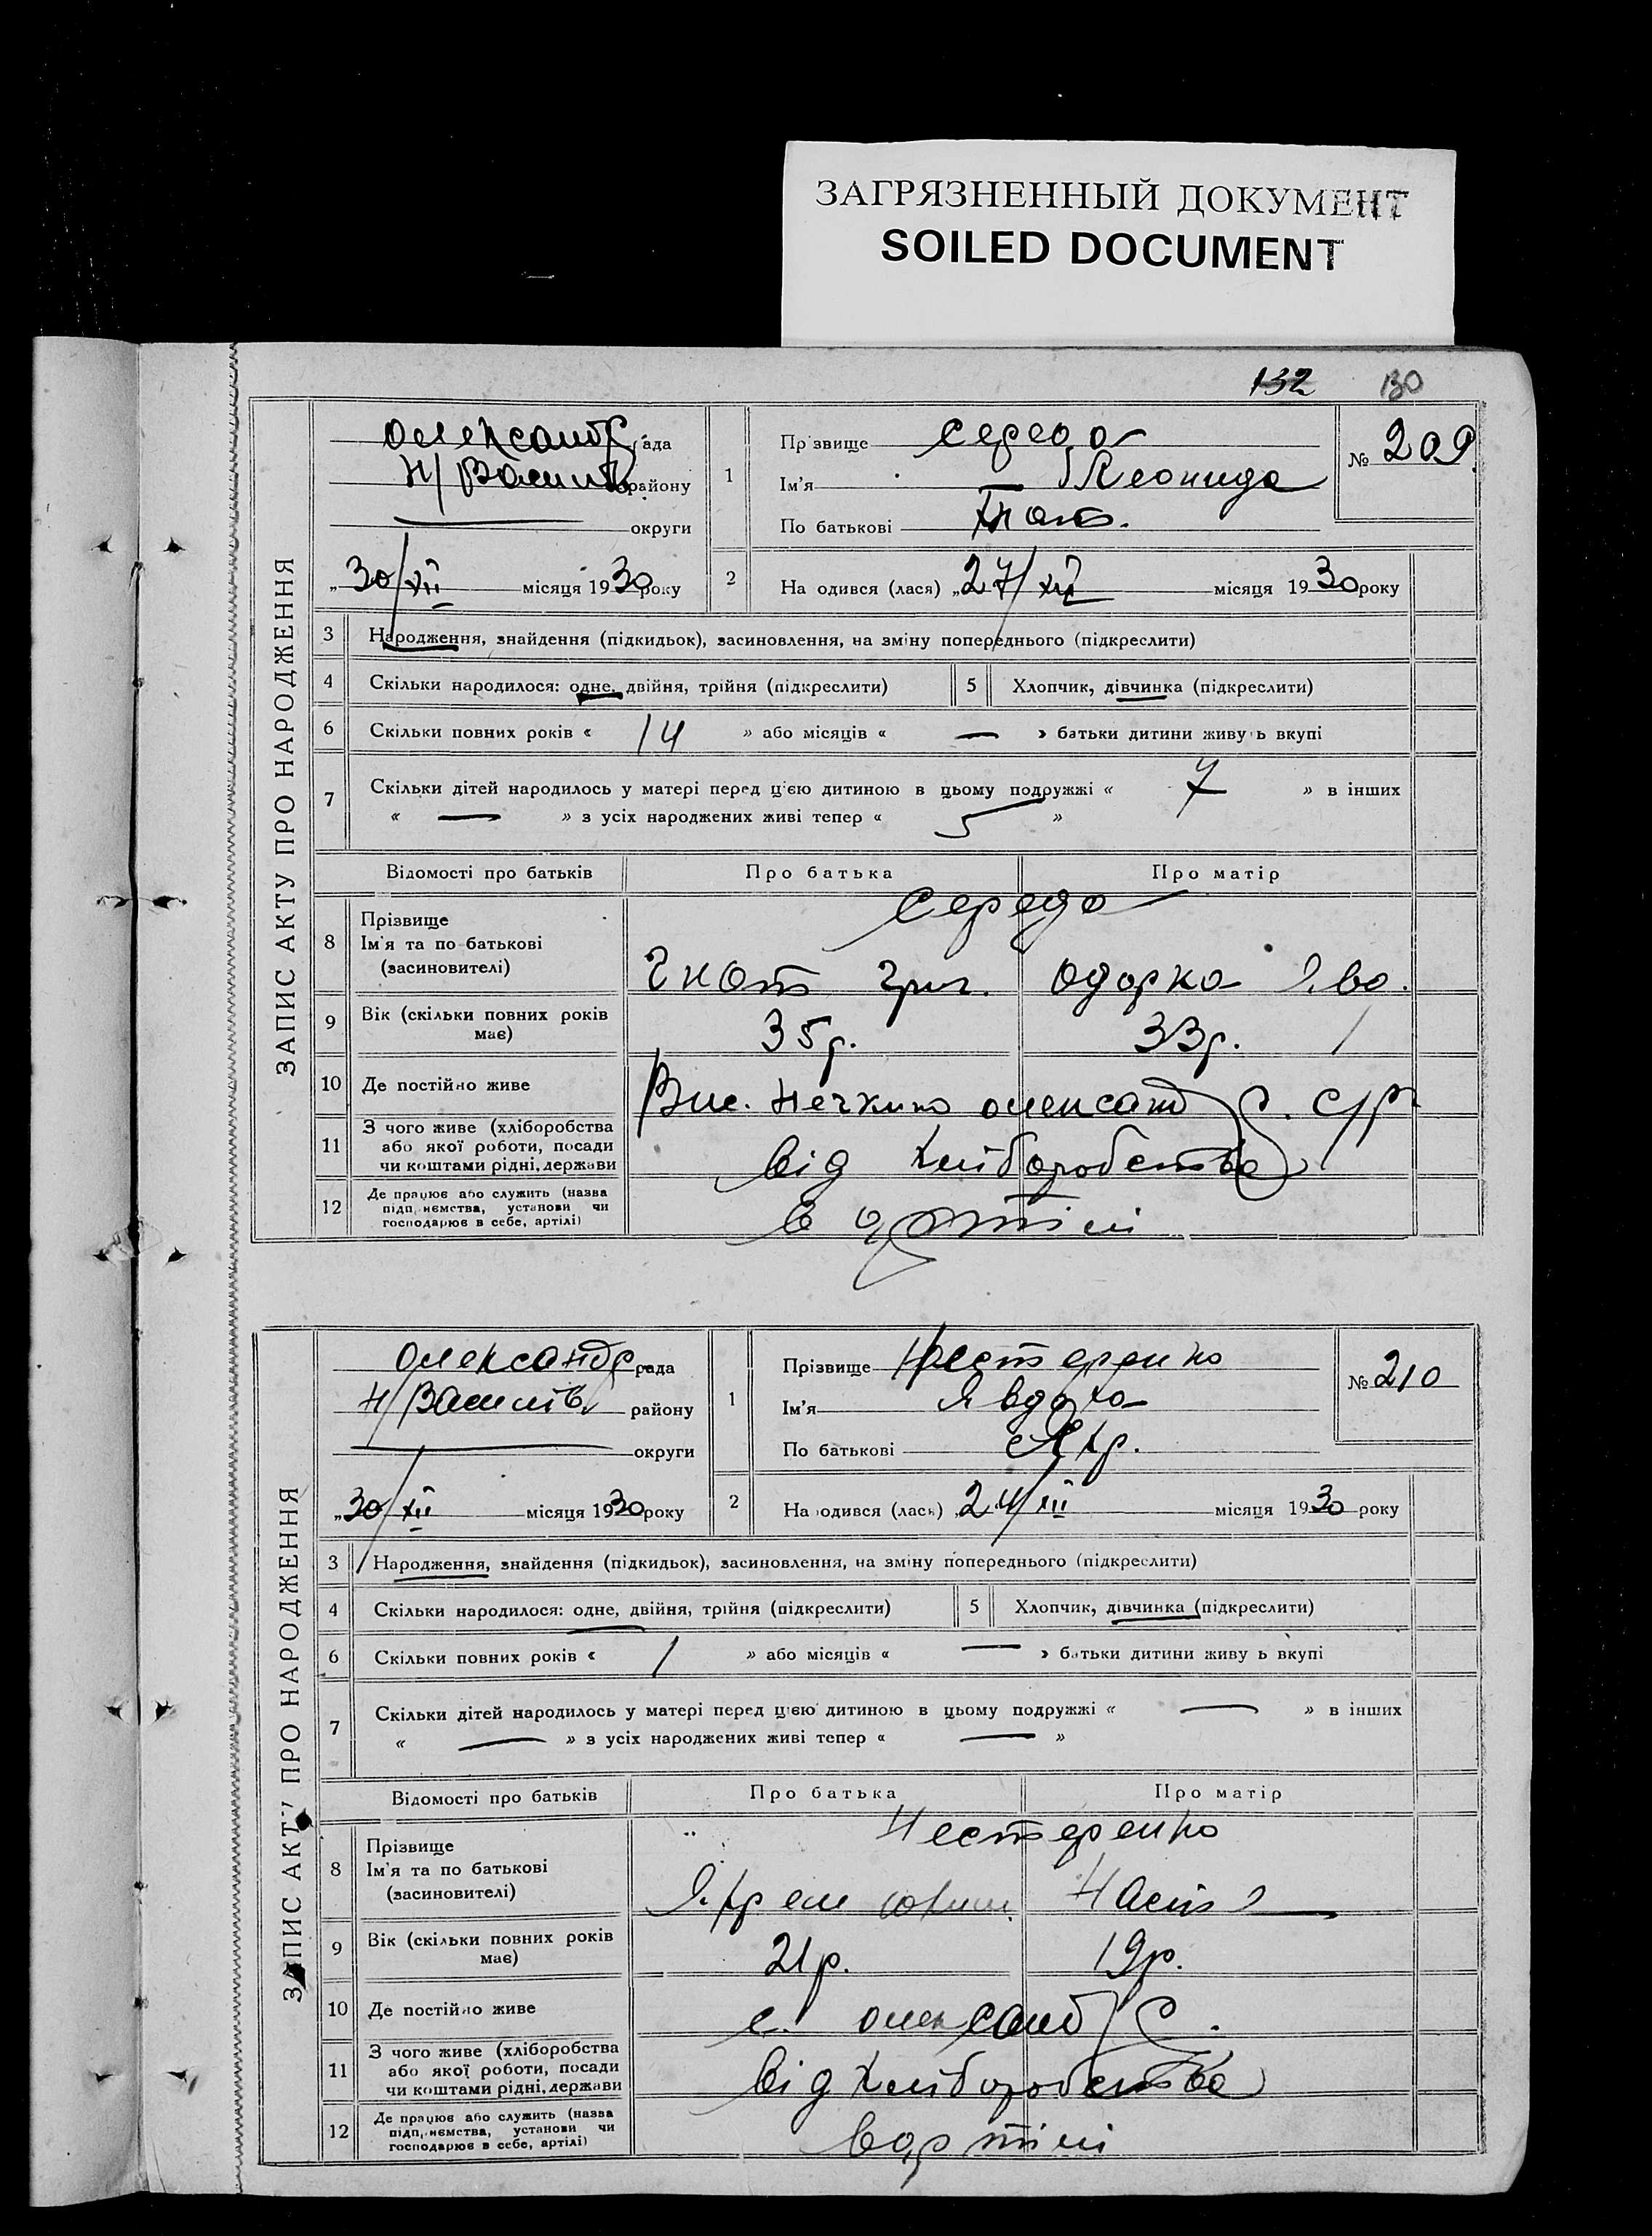 ЗАГРЯЗНЕННЫЙ ДОКУМЕНТ
SOILED DOCUMENT
132 130
ЗАПИС АКТУ ПРО НАРОДЖЕННЯ
Олександр рада
Н/Василів району
— округи
„30/XII місяця 1930 року
1 Прізвище Середа
Ім'я Леонида
По батькові Гнат.
№ 209.
2 Народився (лася) „27/XII місяця 1930 року
3 Народження, знайдення (підкидьок), засиновлення, на зміну попереднього (підкреслити)
4 Скільки народилося: одне, двійня, трійня (підкреслити) 5 Хлопчик, дівчинка (підкреслити)
6 Скільки повних років « 14 » або місяців « — » батьки дитини живуть вкупі
7 Скільки дітей народилось у матері перед цією дитиною в цьому подружжі « 7 » в інших
« — » з усіх народжених живі тепер « 5 »
Відомості про батьків Про батька Про матір
8 Прізвище
Ім'я та по батькові
(засиновителі)
Середа
Гнат Григ. Одарка
9 Вік (скільки повних років
має)
35 р. 33 р.
10 Де постійно живе
Вис. Олександ С. с/р.
11 З чого живе (хліборобства
або якої роботи, посади
чи коштами рідні, держави
від хліборобства
12 Де працює або служить (назва
підприємства, установи чи
господарює в себе, артілі)
в артілі
ЗАПИС АКТУ ПРО НАРОДЖЕННЯ
Олександр. рада
Н/Василів району
— округи
„30/XII місяця 1930 року
1 Прізвище Нестеренко
Ім'я Явдоха
По батькові Яхр.
№ 210
2 Народився (лась) „24/XII місяця 1930 року
3 Народження, знайдення (підкидьок), засиновлення, на зміну попереднього (підкреслити)
4 Скільки народилося: одне, двійня, трійня (підкреслити) 5 Хлопчик, дівчинка (підкреслити)
6 Скільки повних років « 1 » або місяців « — » батьки дитини живуть вкупі
7 Скільки дітей народилось у матері перед цією дитиною в цьому подружжі « — » в інших
« — » з усіх народжених живі тепер « — »
Відомості про батьків Про батька Про матір
8 Прізвище
Ім'я та по батькові
(засиновителі)
Нестеренко
Яхрем Юхим. Настя
9 Вік (скільки повних років
має)
21 р. 19 р.
10 Де постійно живе
с. Олександ С.
11 З чого живе (хліборобства
або якої роботи, посади
чи коштами рідні, держави
від хліборобства
12 Де працює або служить (назва
підприємства, установи чи
господарює в себе, артілі)
в артілі